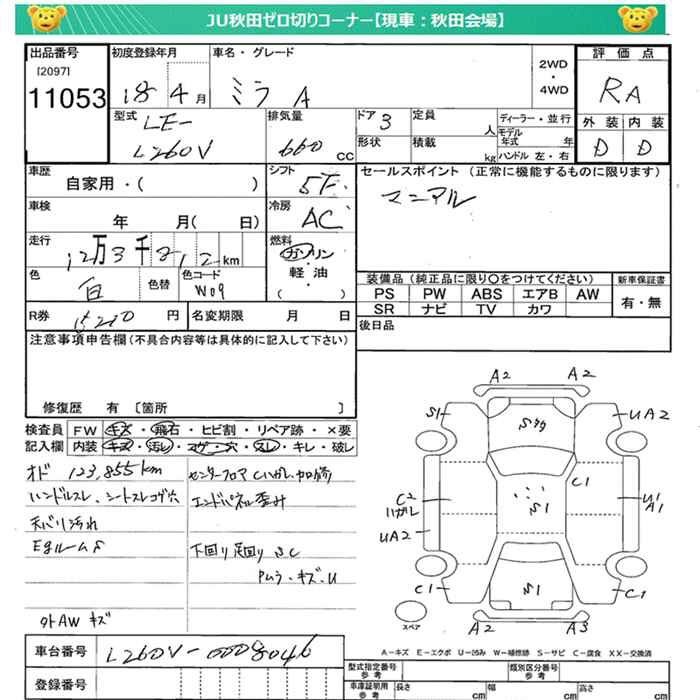 JU秋田ゼロ切りコーナー【現車：秋田会場】
出品番号
[2097]
11053
初度登録年月
18 4月
車名・グレード
ミラ A
2WD
・
4WD
評価点
RA
外装 内装
D D
型式
LE-
L260V
排気量
660 CC
ドア 3
形状
定員 人
積載 kg
ディーラー・並行
モデル年式 年
ハンドル 左・右
車歴
自家用・( )
シフト
5F
車検
年 月( 日)
冷房
AC
走行
12万3千812km
燃料
ガソリン
・
軽・油
・
( )
色
白
色替
色コード
W09
R券 15210 円
名変期限 月 日
セールスポイント（正常に機能するものに限ります）
マニアル
装備品（純正品に限り○をつけてください）
PS PW ABS エアB AW
SR ナビ TV カワ
新車保証書
有・無
後日品
注意事項申告欄(不具合内容等は具体的に記入して下さい)
修復歴 有 〔箇所 〕
検査員記入欄
FW キズ・飛石・ヒビ割・リペア跡・×要
内装 キズ・汚レ・コゲ・穴・スレ・キレ・破レ
オド 123,855km
ハンドルスレ、シートスレコゲ穴
天バリ汚れ
EgルームS
外AW キズ
センターフロアCハガレ、加修
エンドパネル歪み
下回り足回り SC
Pムラ・キズ・U
A2 A2
S1 Sサク UA2
C1
C2
ハガレ
UA2
S1
U1
A1
C1 S1 C1
スペア
A2 A3
A－キズ E－エクボ U－凹み W－補修跡 S－サビ C－腐食 XX－交換済
車台番号 L260V-0008046
登録番号
型式指定番号
参考
類別区分番号
参考
車庫証明用
参考
長さ cm
幅 cm
高さ cm